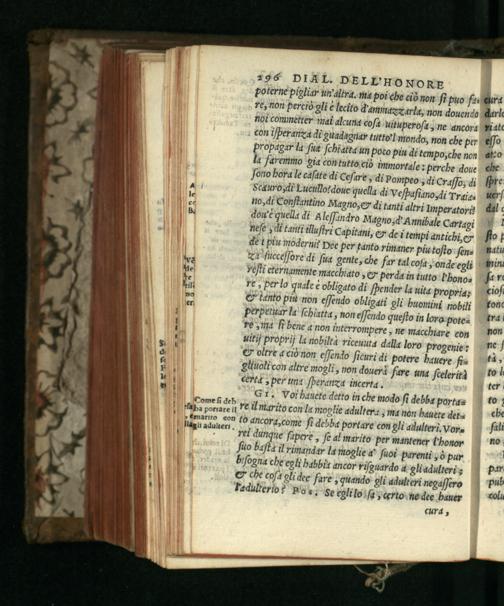 296 DIAL. DELL'HONORE
poterne pigliar un'altra. ma poi che ciò non si puo fa-
re, non perciò gli è lecito d'ammazzarla, non douendo
noi commetter mai alcuna cosa uituperosa, ne ancora
con isperanza di guadagnar tutto'l mondo, non che per
propagar la sua schiatta un poco piu di tempo, che non
la faremmo gia con tutto ciò immortale: perche doue
sono hora le casate di Cesare, di Pompeo, di Crasso, di
Scauro, di Lucullo? doue quella di Vespasiano, di Traia-
no, di Constantino Magno, & di tanti altri Imperatori?
dou'è quella di Alessandro Magno, d'Annibale Cartagi
nese, di tanti illustri Capitani, & de i tempi antichi, &
de i piu moderni? Dee per tanto rimaner piu tosto sen-
za successore di sua gente, che far tal cosa, onde egli
resti eternamente macchiato, & perda in tutto l'hono-
re, per lo quale è obligato di spender la uita propria;
& tanto piu non essendo obligati gli huomini nobili
perpetuar la schiatta, non essendo questo in loro pote-
re, ma si bene a non interrompere, ne macchiare con
uitij proprij la nobiltà riceuuta dalla loro progenie:
& oltre a ciò non essendo sicuri di potere hauere fi-
gliuoli con altre mogli, non douerà fare una scelerità
certa, per una speranza incerta.
Gi. Voi hauete detto in che modo si debba porta-
re il marito con la moglie adultera, ma non hauete det-
to ancora, come si debba portare con gli adulteri. Vor-
rei dunque sapere, se al marito per mantener l'honor
suo basta il rimandar la moglie a' suoi parenti, ò pur
bisogna che egli habbia ancor risguardo a gli adulteri;
& che cosa gli dee fare, quando gli adulteri negassero
l'adulterio? Pos. Se egli lo sa, certo ne dee hauer
cura,
Come si deb
ba portare il
marito con
gli adulteri.